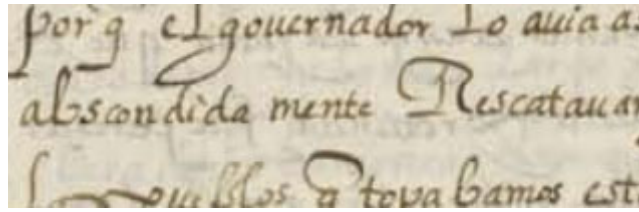 porq el gouernador Lo auia as
abscondida mente Rescataua
pueblos q topabamos est